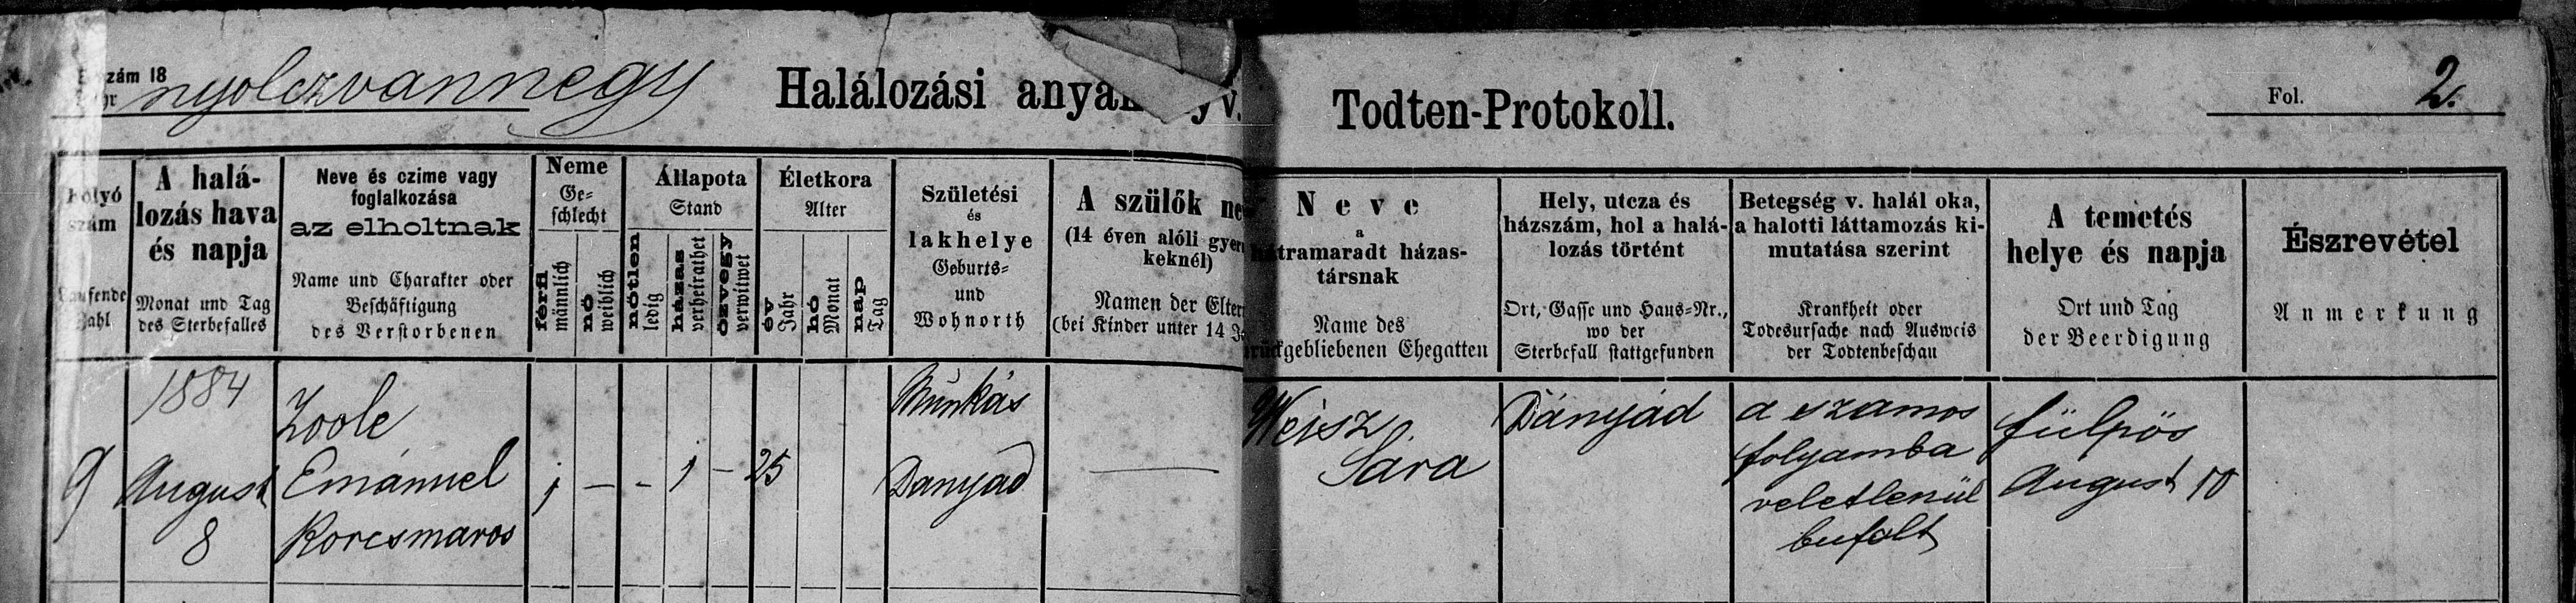 zám 18
nyolczvannegy
Halálozási anyak v.
Todten-Protokoll.
Fol. 2.
Folyó szám
Laufende Zahl
A halálozás hava és napja
Monat und Tag des Sterbefalles
Neve és czime vagy foglalkozása
az elholtnak
Name und Charakter oder Beschäftigung
des Verstorbenen
Neme
Ge-
schlecht
férfi
männlich
nő
weiblich
Állapota
Stand
nőtlen
ledig
házas
verheirathet
özvegy
verwitwet
Életkora
Alter
év
Jahr
hó
Monat
nap
Tag
Születési
és
lakhelye
Geburts-
und
Wohnorth
A szülők ne
(14 éven alóli gyer
keknél)
Namen der Elter
(bei Kinder unter 14 J
Neve
a
hátramaradt házas-
társnak
Name des
rückgebliebenen Ehegatten
Hely, utcza és
házszám, hol a halá-
lozás történt
Ort, Gasse und Haus-Nr.,
wo der
Sterbefall stattgefunden
Betegség v. halál oka,
a halotti láttamozás ki-
mutatása szerint
Krankheit oder
Todesursache nach Ausweis
der Todtenbeschau
A temetés
helye és napja
Ort und Tag
der Beerdigung
Észrevétel
Anmerkung
9
1884
August
8
Zoole
Emánuel
Korcsmaros
1 — - 1 — 25
Munkás
Danyád
—
Weisz
Sara
Dányád
a szamos
folyamba
veletlenül
bufalt
fülpös
August 10